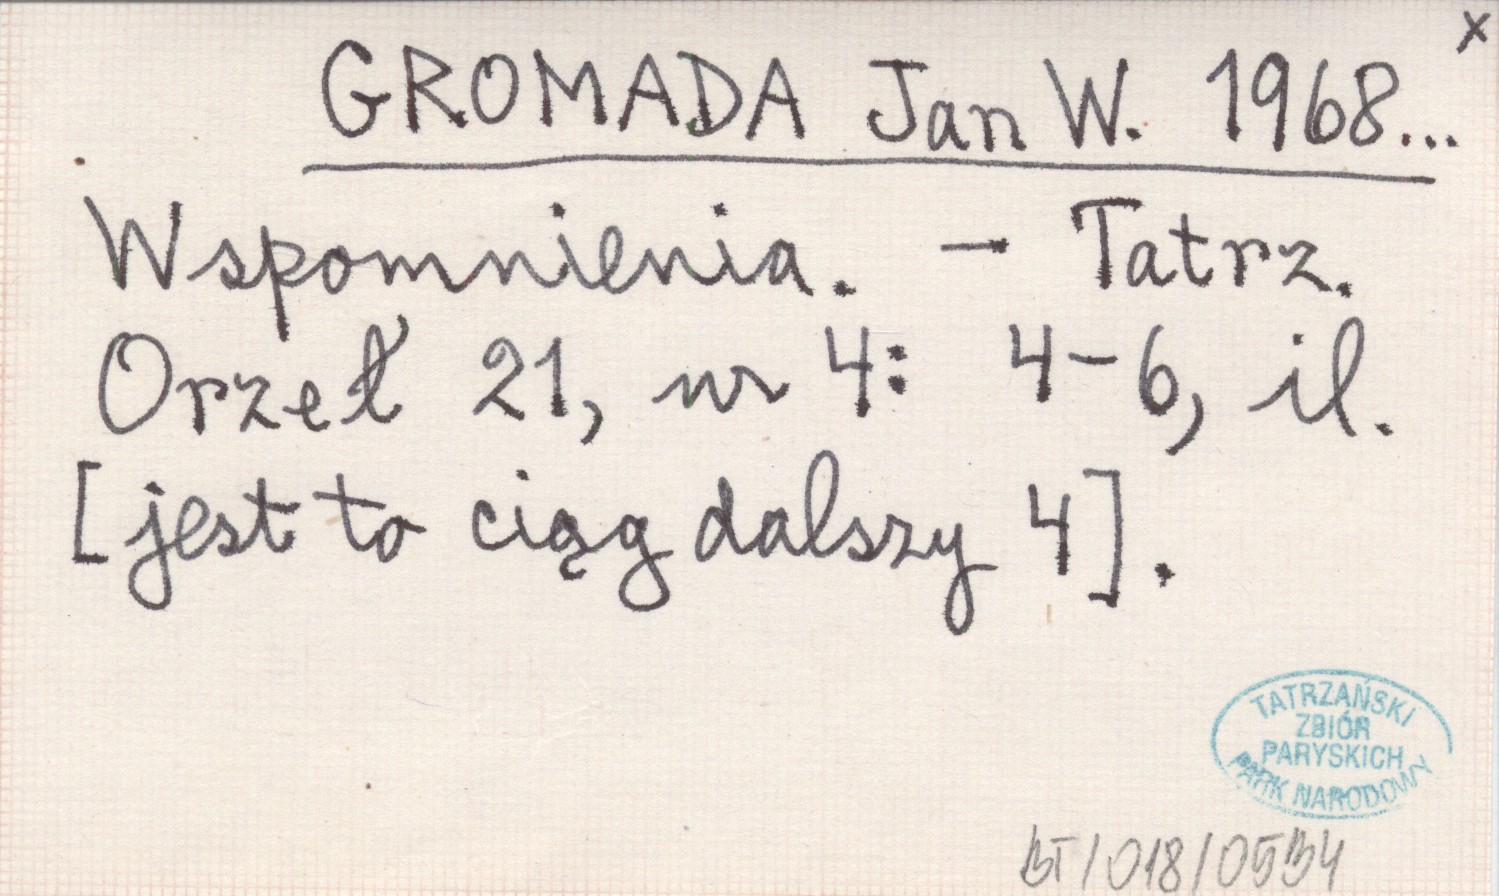 x
GROMADA Jan W. 1968...
Wspomnienia. - Tatrz.
Orzeł 21, nr 4: 4-6, il.
[jest to ciąg dalszy 4].
TATRZAŃSKI
ZBIÓR
PARYSKICH
PARK NARODOWY